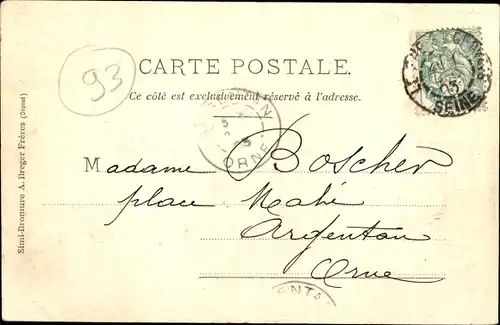 93
CARTE POSTALE.
Ce côté est exclusivement réservé à l'adresse.
ORNE
SEINE
Madame Boscher
place Mahé
Argentan
Orne
Simi-Bromure A. Breger Frères (Déposé)